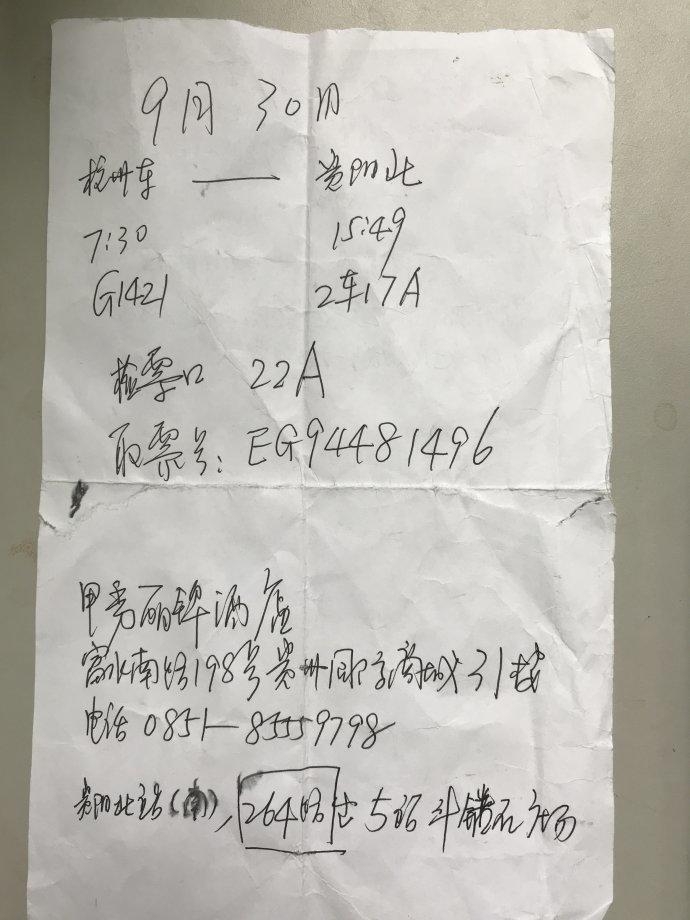 9月 30日
杭州东 —— 贵阳北
7:30 15:49
G1421 2车17A
检票口 22A
取票号: EG94481496
甲秀丽锦酒店
富水南路198号贵州国际商城31楼
电话 0851-85559798
贵阳北站(南), 264路 5站 钻石广场